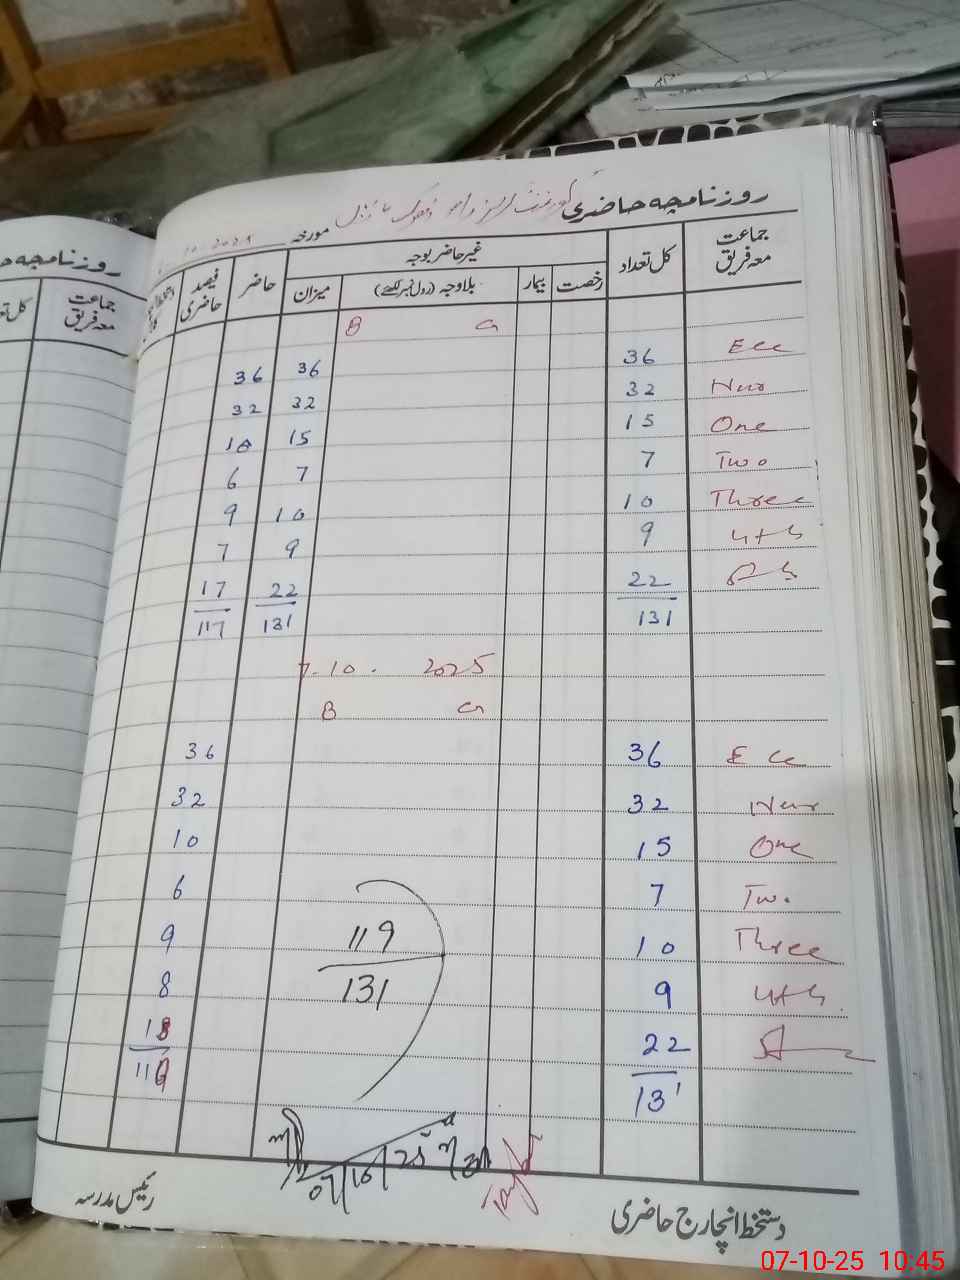 روزنامچہ حاضری گورنمنٹ
مورخہ 10-2025
جماعت معہ فریق کل تعداد غیر حاضر بوجہ حاضر فیصد حاضری
رخصت بیمار بلاوجہ (رول نمبر لکھئے) میزان
B G
Ecc 36 36 36
Nur 32 32 32
One 15 15 10
Two 7 7 6
Three 10 10 9
4th 9 9 7
5th 22 22 17
131 131 117
7-10-2025
B G
Ecc 36 36
Nur 32 32
One 15 10
Two 7 6
Three 10 9
4th 9 8
22 18
131 119
119
131
07/10/25
دستخط انچارج حاضری
رئیس مدرسہ
روزنامچہ
جماعت معہ فریق
07-10-25 10:45